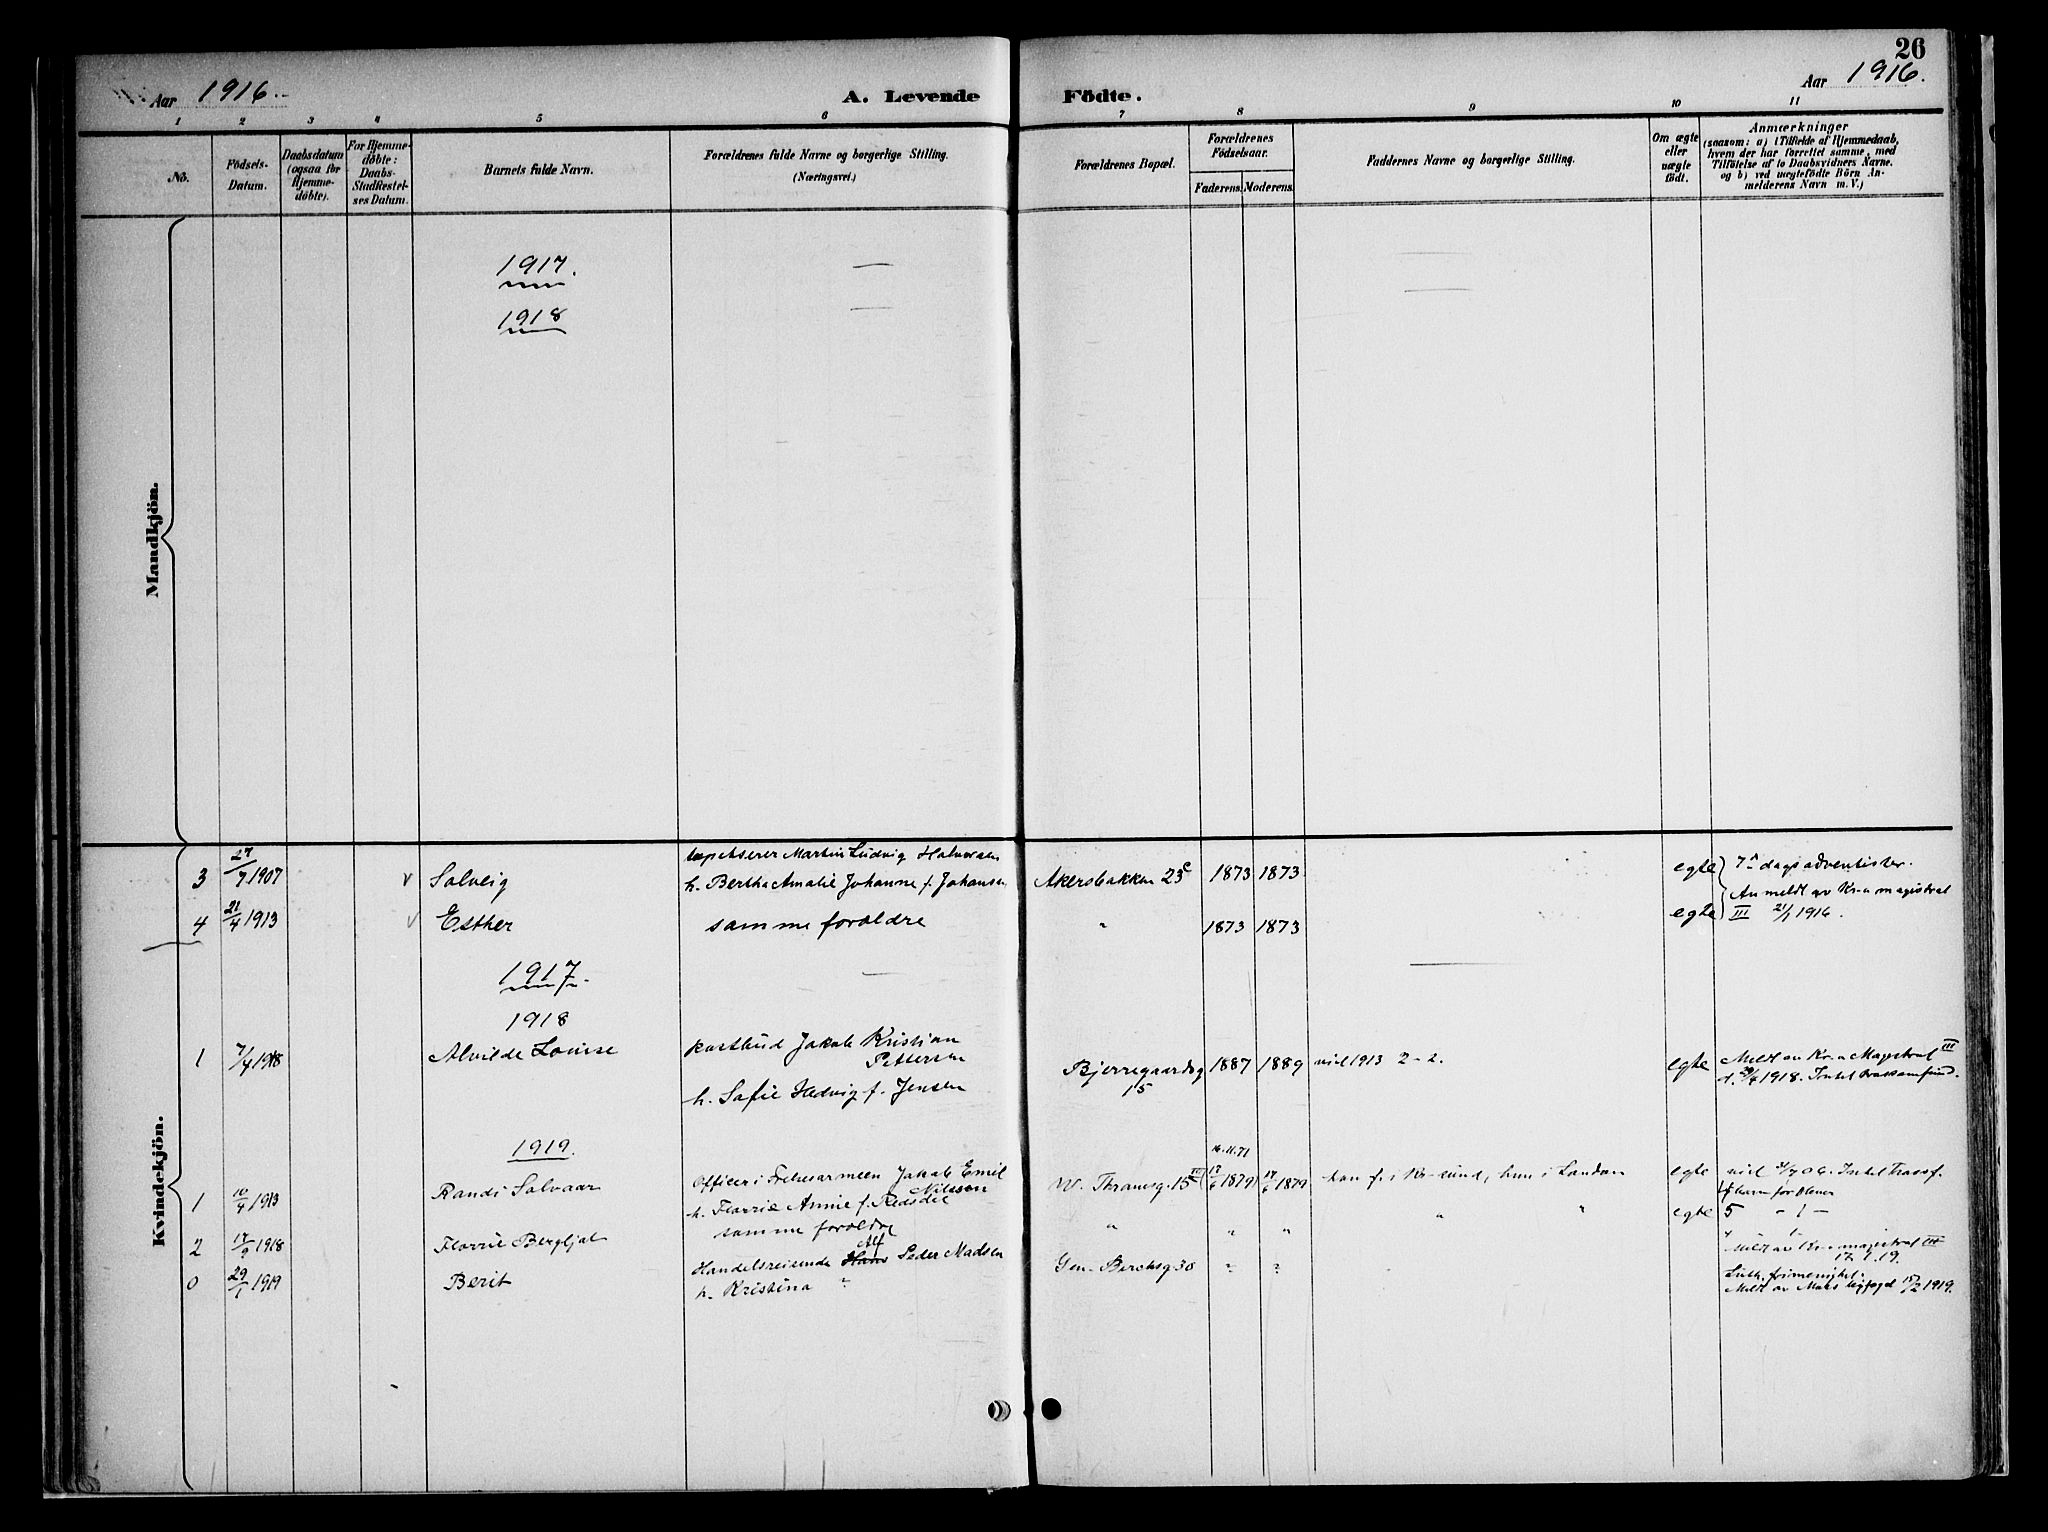 26
Aar 1916.
A. Levende Födte.
Aar 1916.
1 2 3 4 5 6 7 8 9 10 11
No.
Födsels-
Datum.
Daabsdatum
(ogsaa for
Hjemme-
döbte).
For Hjemme-
döbte:
Daabs-
Stadfæstel-
ses Datum.
Barnets fulde Navn.
Forældrenes fulde Navne og borgerlige Stilling.
(Næringsvei.)
Forældrenes Bopæl.
Forældrenes
Födselsaar.
Faderens.
Moderens.
Faddernes Navne og borgerlige Stilling.
Om ægte
eller
uægte
født.
Anmærkninger
(saasom: a) i Tilfælde af Hjemmedaab,
hvem der har forrettet samme, med
Tilföielse af to Daabsvidners Navne.
og b) ved uægtefödte Börn An-
melderens Navn m. V.)
Mandkjön.
1917. —
1918 —
Kvindekjön.
3 27/7 1907 v Solveig tapetserer Martin Ludvig Halvorsen
h. Bertha Amalie Johanne f. Johansen Akersbakken 23c 1873 1873 egte 7de dags adventister.
Anmeldt av Kr-a magistrat
4 21/4 1913 v Esther samme foreldre " 1873 1873 egte III 21/1 1916.
1917. —
1918
1 7/4 1918 Alvilde Louise postbud Jakob Kristian
Pettersen
h. Sofie Hedvig f. Jensen
Bjerregaardsg
15
1887 1889 viet 1913 2-2. egte Meldt av Kr.a Magistrat III
d. 29/4 1918. Intet trossamfund.
1919.
16.11.71
1 10/4 1913 Randi Solvaar Officer i Frelsesarmeen Jakob Emil
Nilssen
h. Florrie Annie f.
W. Thranesg. 15 III 17/6 1879 17/6 1879 han f. i Kr-sund, hun i London egte viet 06. Intet Trossf.
4 barn før denne
2 17/9 1918 Florrie Bergljot samme foreldre " " " " " egte 5 - " -
Meldt av Kr-a magistrat III
17.1.19.
0 29/1 1919 Berit Handelsreisende Hans Alf Peder Madsen
h. Kristina ?
Gen. Berchsg 30 ? ?
Luth. frimenighet.
Meldt av 15/2 1919.